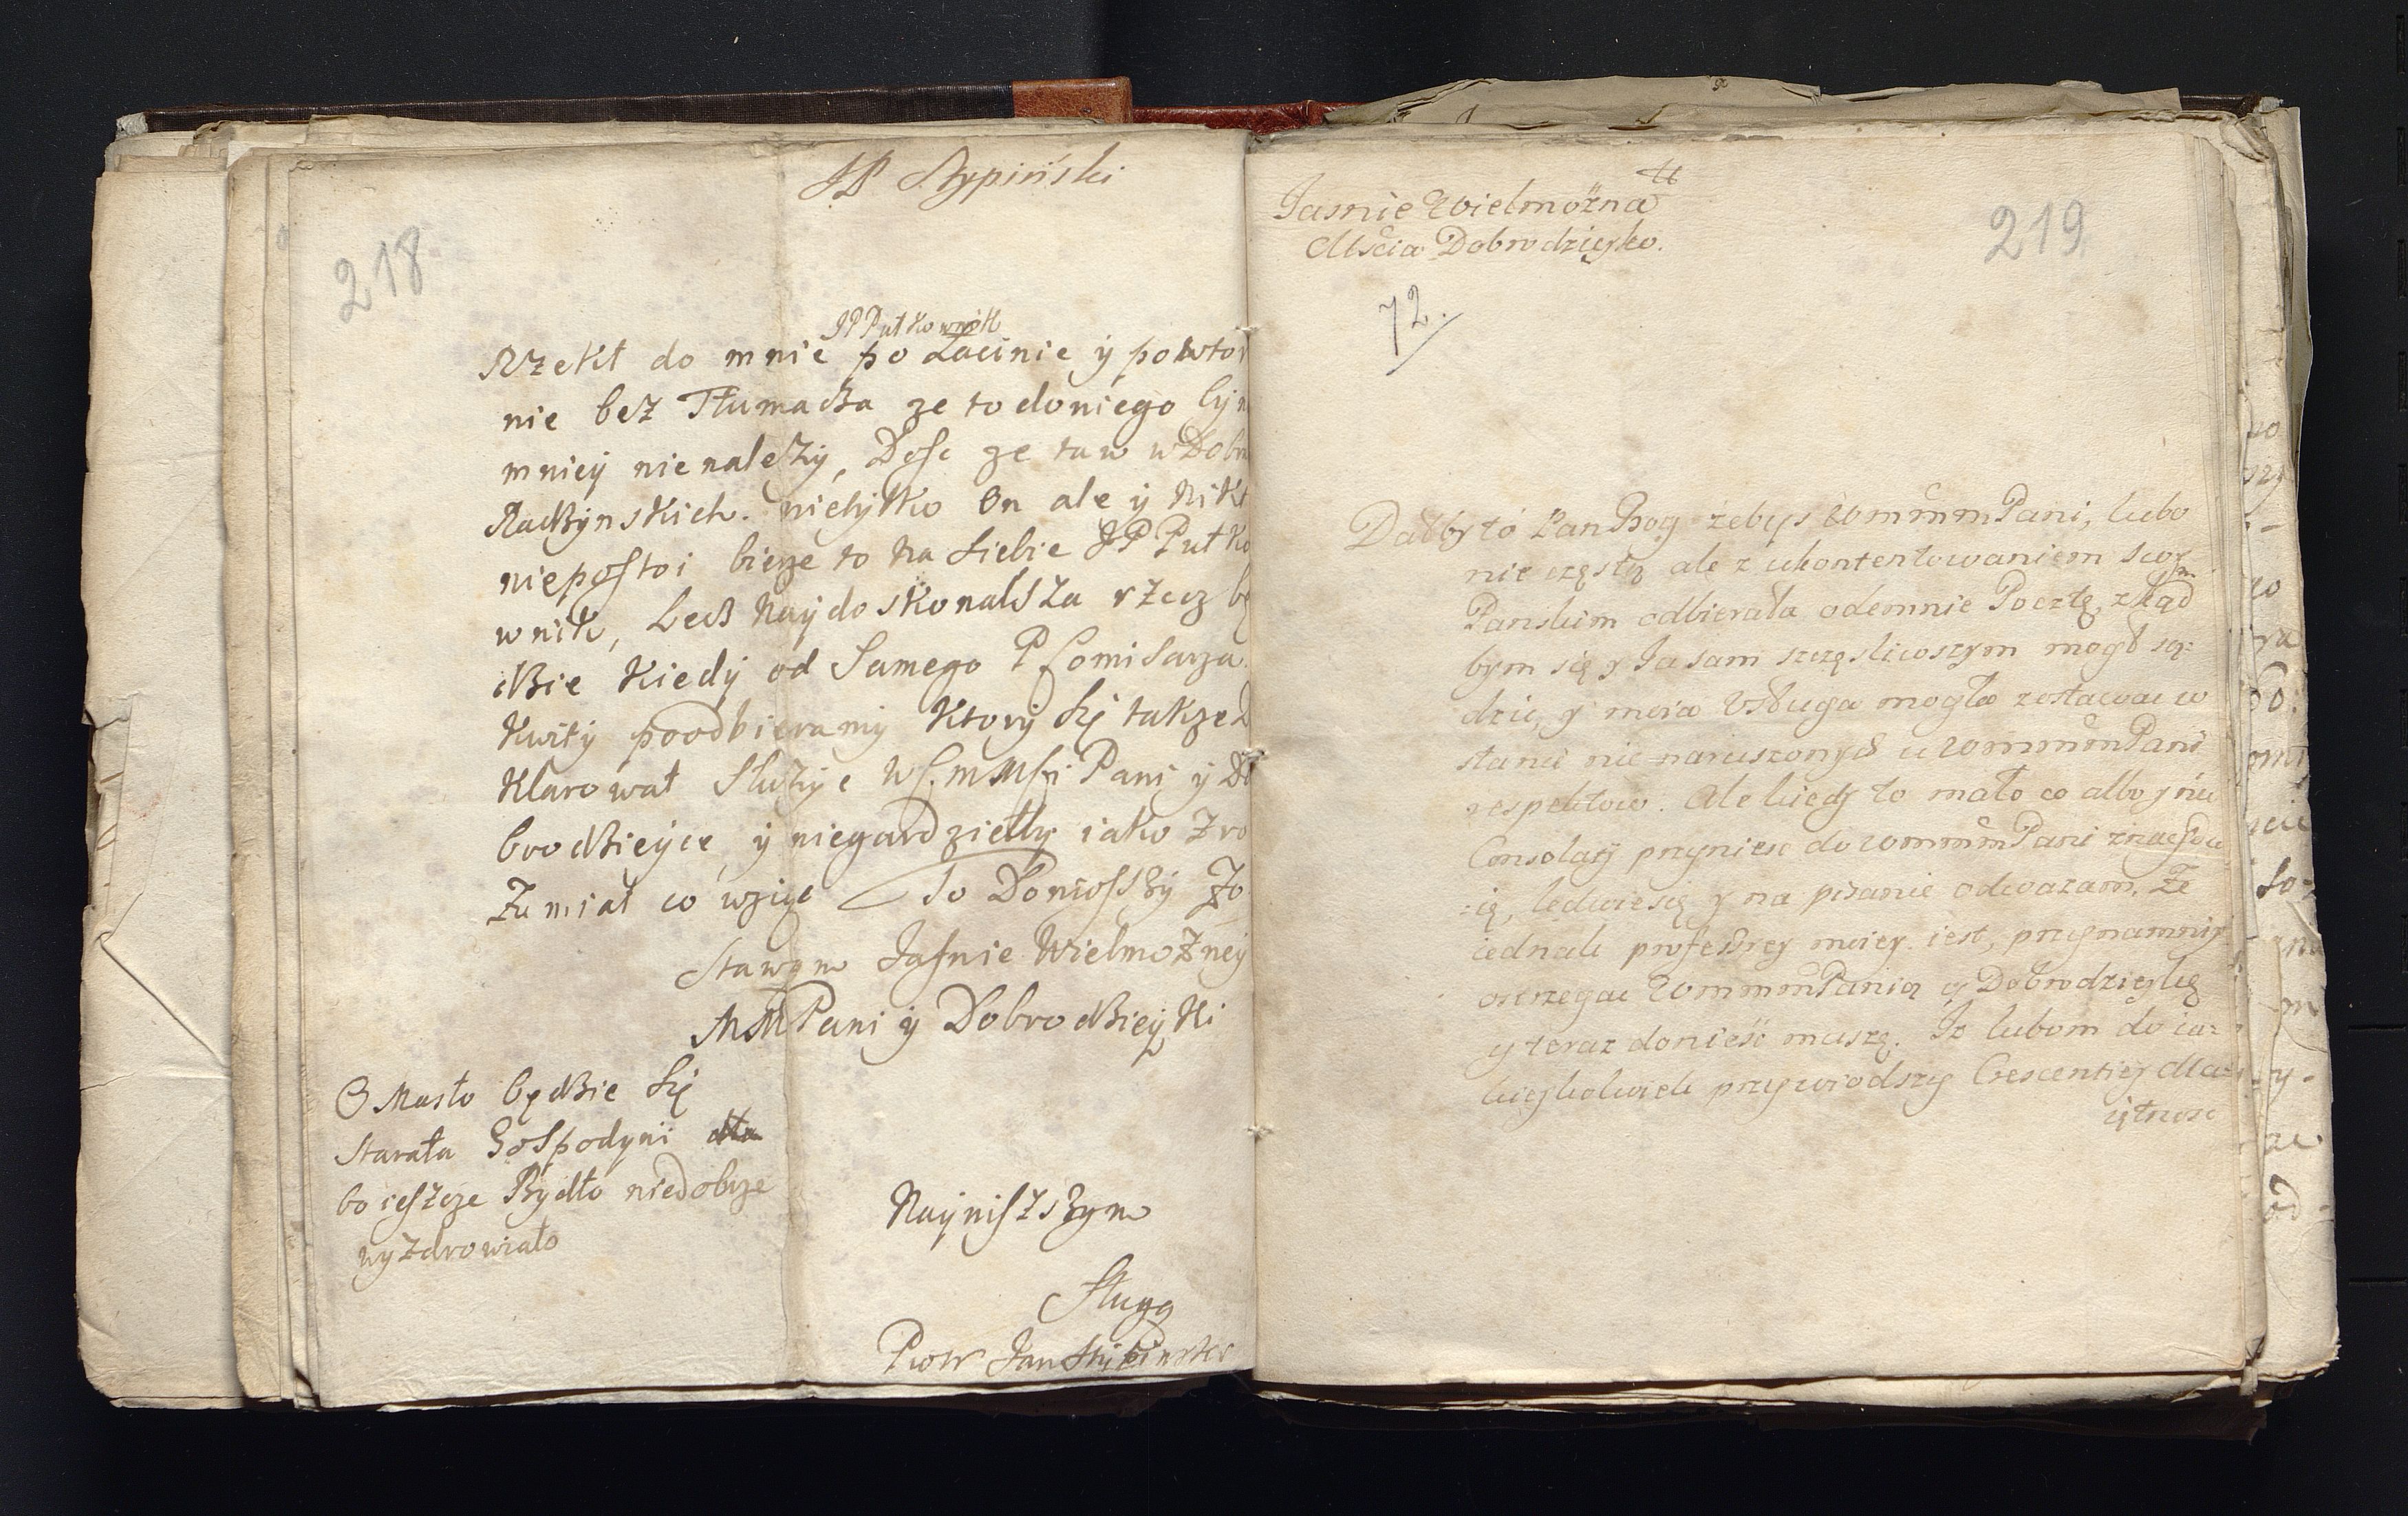 JP Stypiński
218
JP Pułkownik
Rzekł do mnie po Łacinie y powtor
nie bez Tłumacza ze to doniego byn
mniey nienalezy, Dosc ze taw w Dobra
Radzynskich. nietylko On ale y Nikt
niepostoi bierze to Na siebie JP Pułko
wnik, Lecz Naydoskonalsza rzecz bę
dzie Kiedy od Samego P Comisarza
Kwity poodbieramy Ktory Sę takze De
Klarował Słuzyc W mMsci Pani y Do
brodzieyce y niegardziełby iako Zro
Zumiał co wziąc To Doniosszy Zo
Stawam Jasnie Wielmozney
MMPani y Dobrodzieyki
O Masło będzie Sę
Starała Gospodyni
bo ieszcze Bydło niedobrze
wyzdrowiało
Nayniszszym
Sługą
Piotr Jan Stipinski
219
Jasnie Wielmożna
Mscia Dobrodzieyko.
72.
Dałby to Pan Bog żebys WmmmPani, lubo
nie częstą ale z ukontentowaniem swoym
Panskim odbierała odemnie Pocztę, zkąd
bym się y Ja sam szczęsliwszym mogł są:
dzic, y moia Usługa mogła zostawac w
stanie nie naruszonych u WmmmPani
respektow. Ale kiedy to mało co albo y nic
Consolacy przyniesc do WmmmPani
:ię, ledwie się y na pisanie odwazam. Ze
iednak professyey moiey iest, przynamniey
ostrzegac WmmmPanią y Dobrodzieykę
y teraz donieść muszę. Iz lubom do ia:
kieykolwiek przywiodszy Crescentiey dla